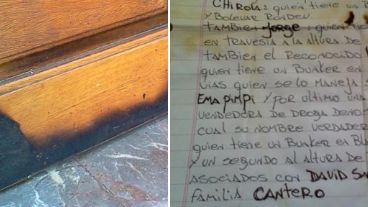 CHIROLA: QUIEN TIENE UN B
Y BOULEVAR RONDEU
TAMBIEN JORGE: QUIEN
EN TRAVESIA A LA ALTURA DE
TAMBIEN EL RECONOCIDO
QUIEN TIENE UN BUNKER EN
VIAS QUIEN SE LO MANEJA
EMA PIMPI Y POR ULTIMO UNA
VENDEDORA DE DROGA DENO
CUAL SU NOMBRE VERDADER
QUIEN TIENE UN BUNKER EN BO
Y UN SEGUNDO AL ALTURA DE
ASOCIADOS CON DAVID
FAMILIA CANTERO